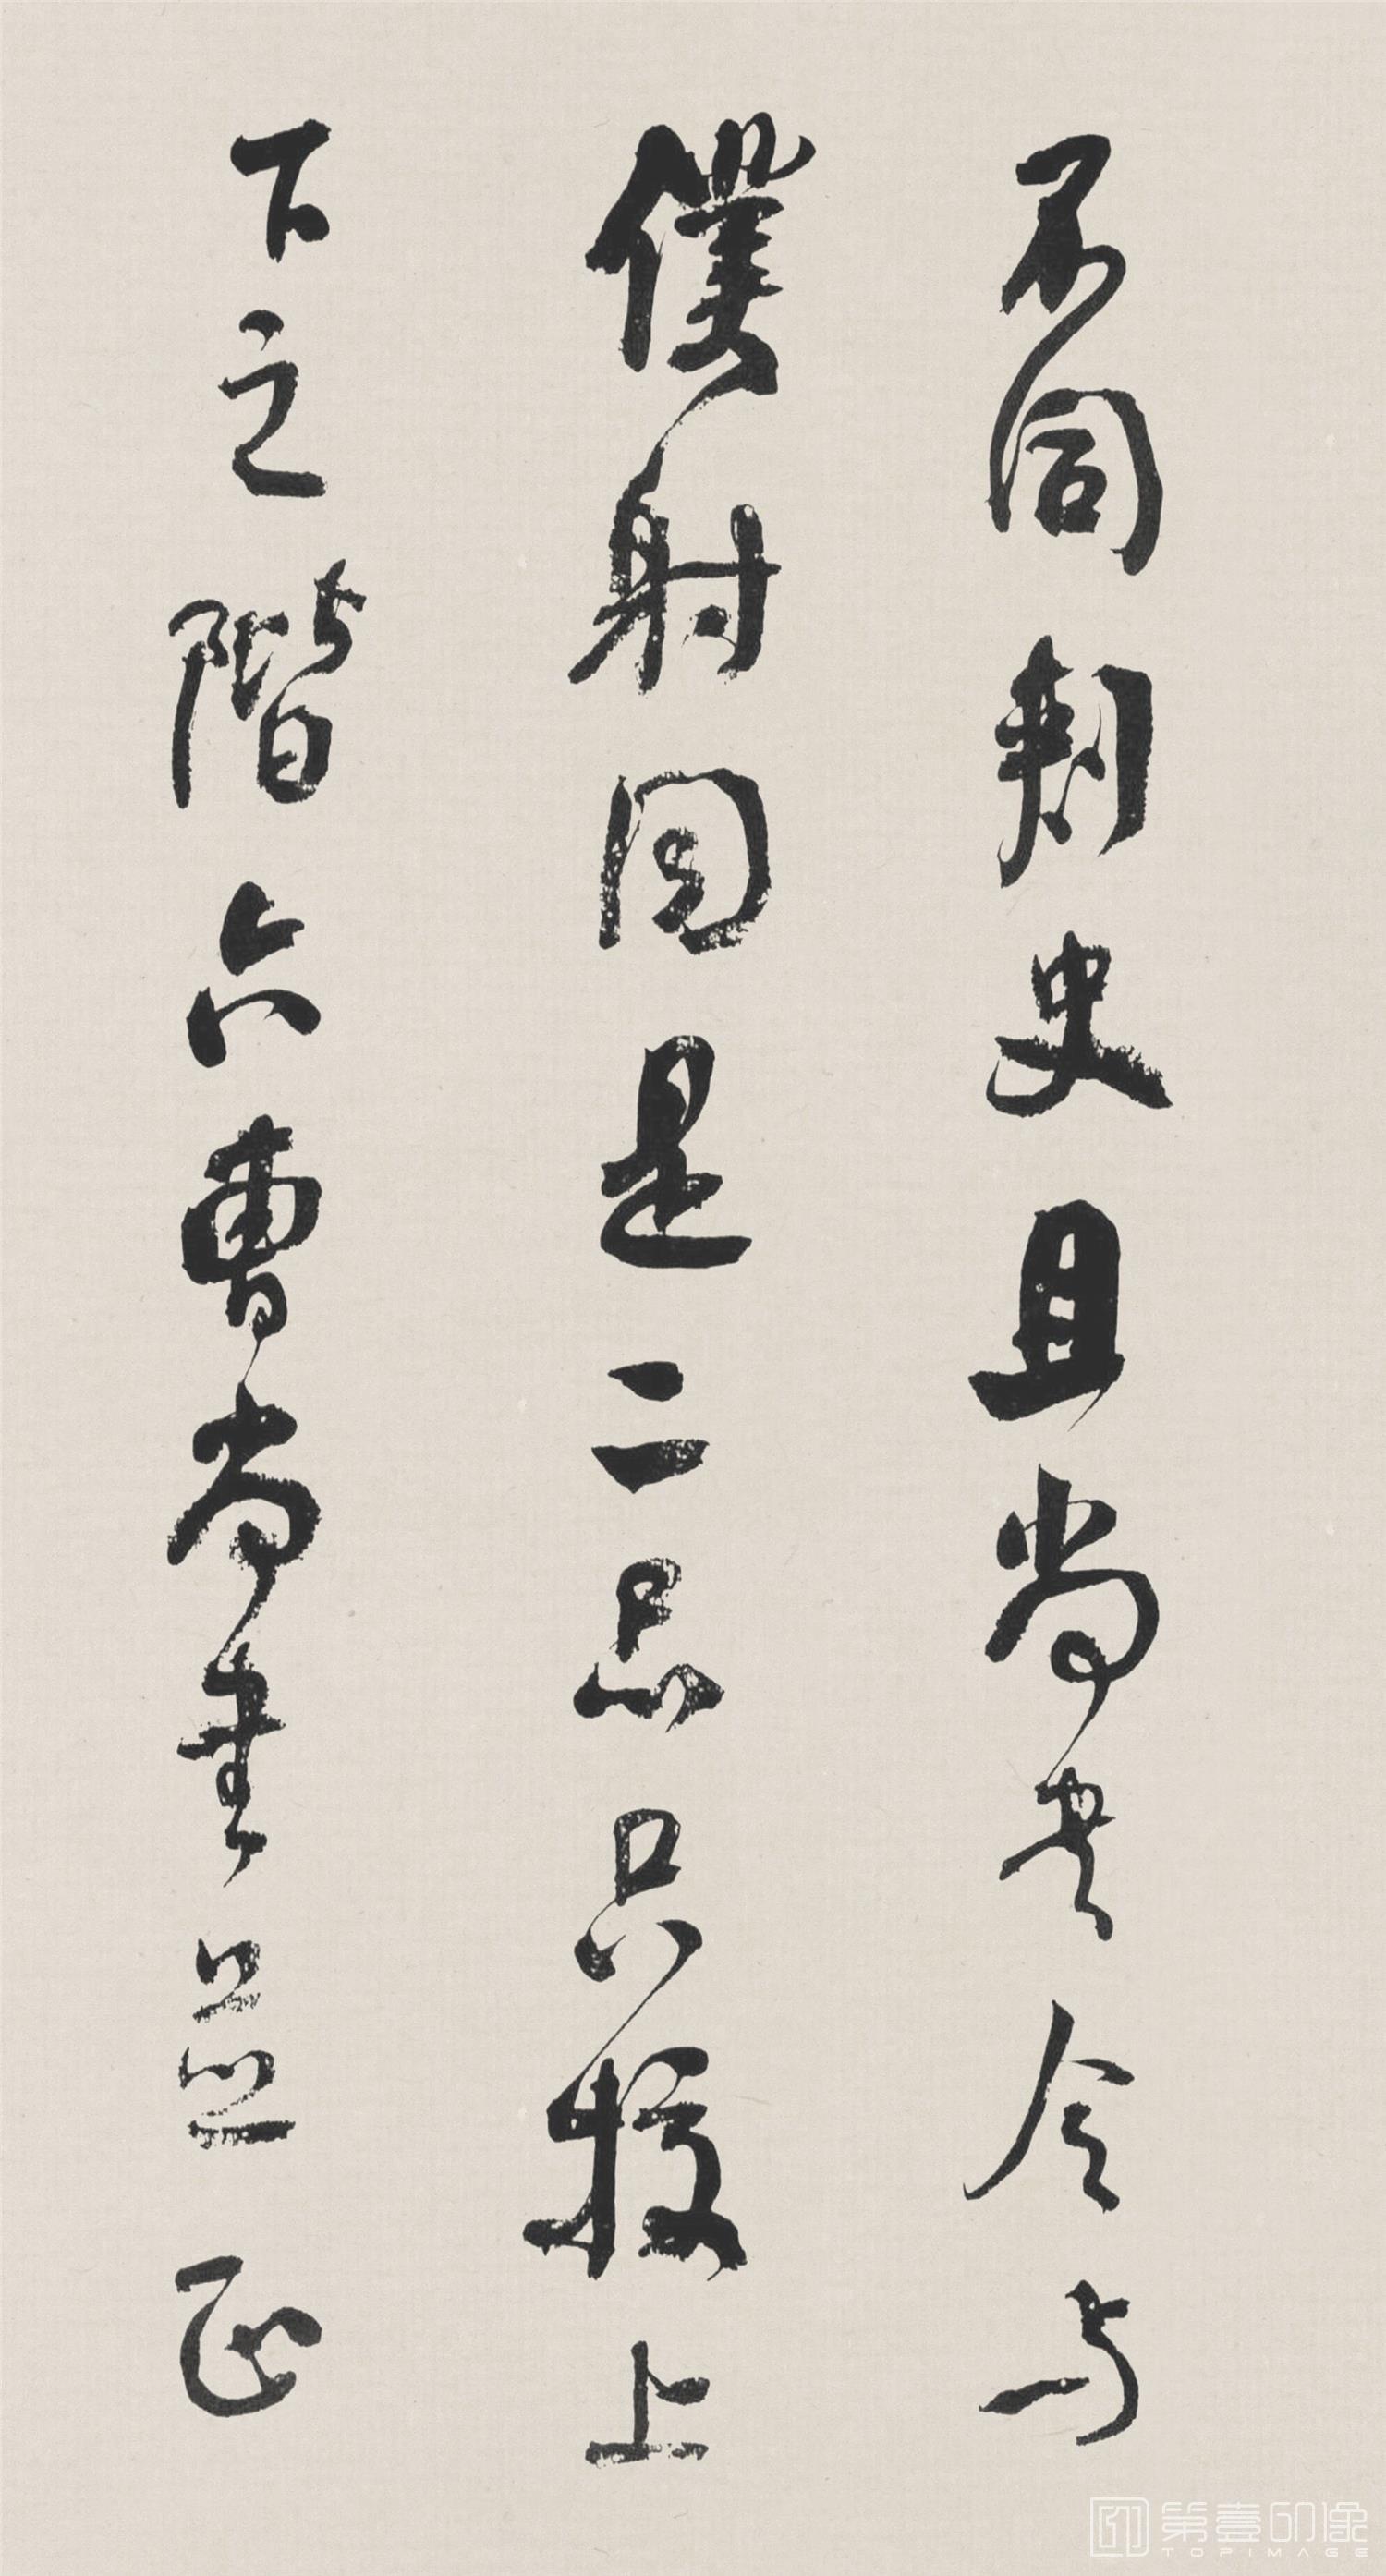 不同刺史且尚書令与
僕射同是二品只校上
下之階六曹尚書並正
第壹印像
TOPIMAGE